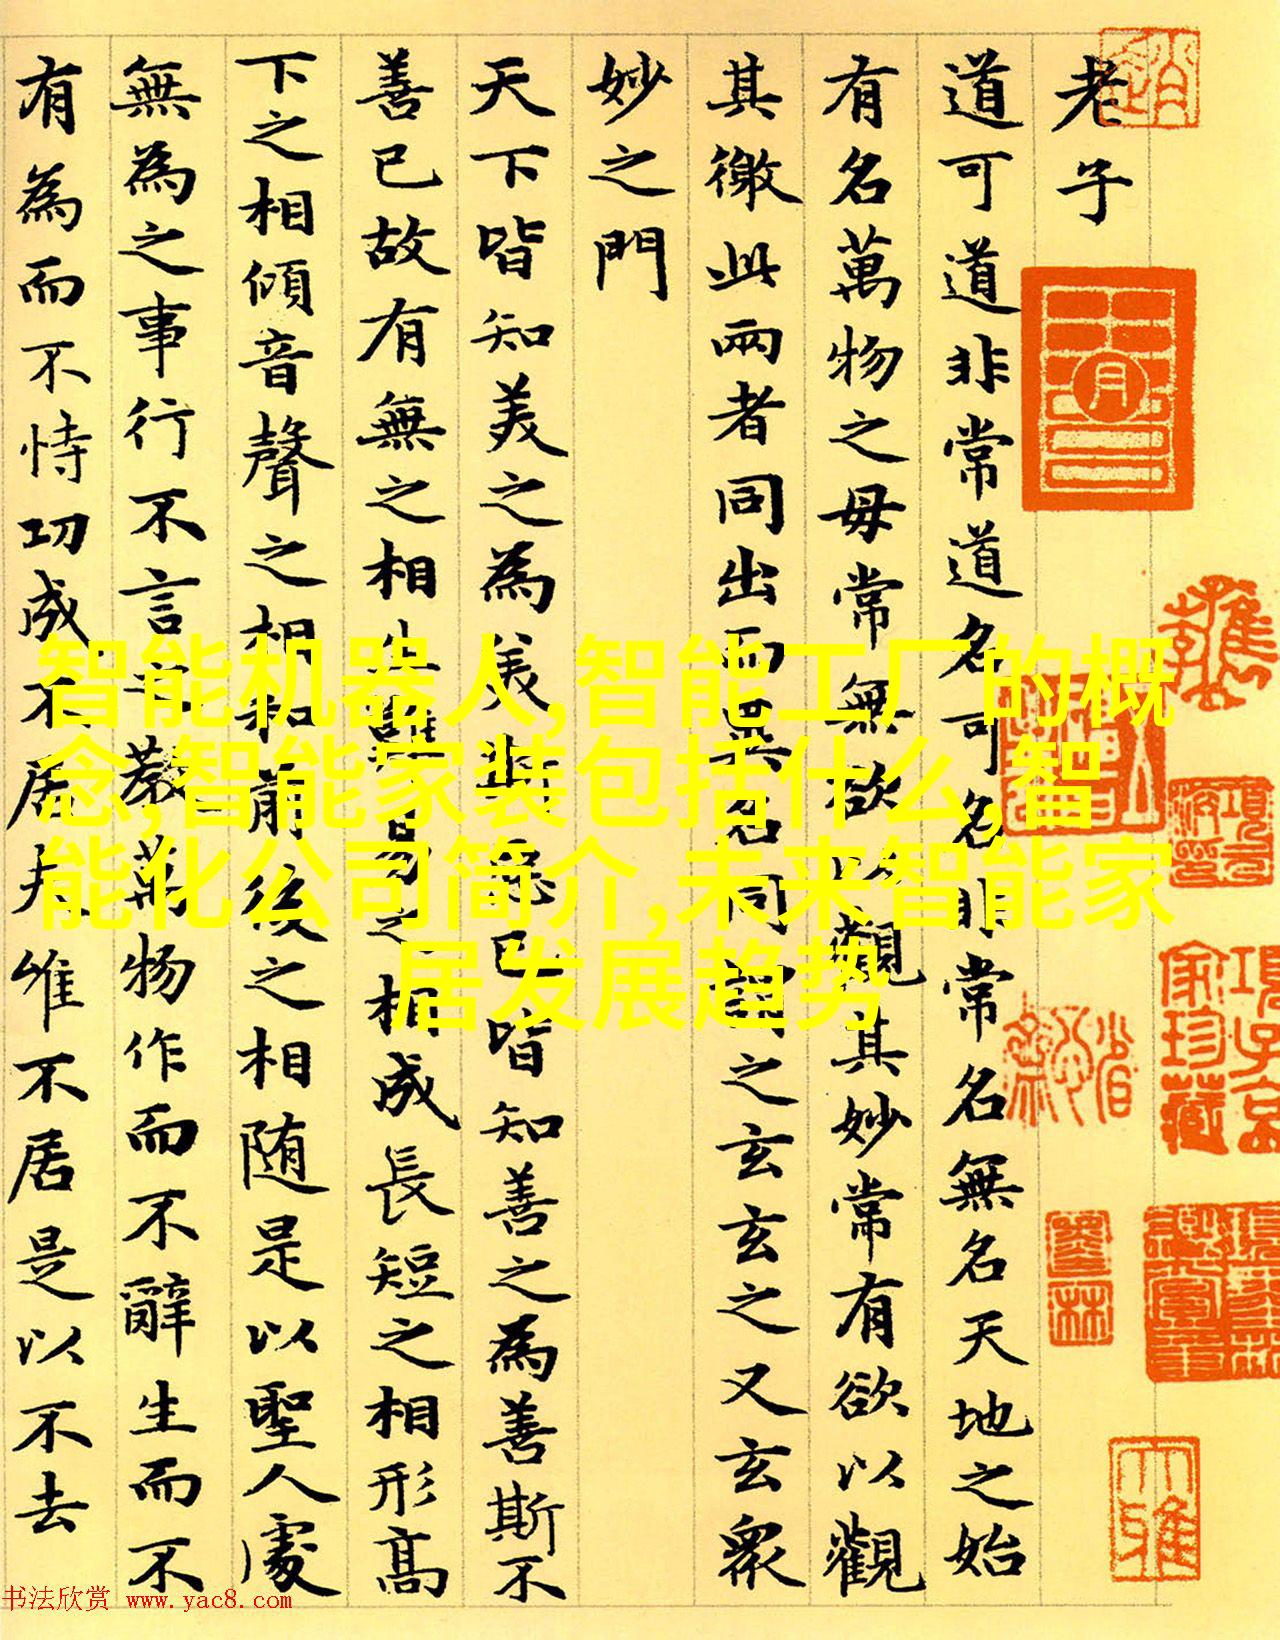 老子
道可道非常道名可名非常名無名天地之始
有名萬物之母常無欲以觀其妙常有欲以觀
其徼此兩者同出而異名同謂之玄玄之又玄衆
妙之門
天下皆知美之為美斯惡已皆知善之為善斯不
善已故有無之相生難易之相成長短之相形高
下之相傾音聲之相和前後之相随是以聖人處
無為之事行不言之教萬物作而不辭生而不
有為而不恃功成不居夫唯不居是以不去
智能机器人,智能工厂的概
念,智能家装包括什么,智
能化公司简介,未来智能家
居发展趋势
项子京
家珍藏
大雅
书法欣赏 www.yac8.com